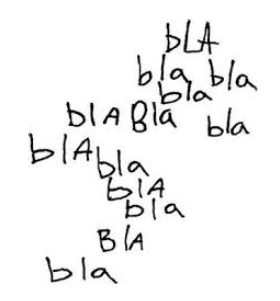 bLA
bla bla
bla
blA Bla bla
blA bla
blA
bla
BlA
bla